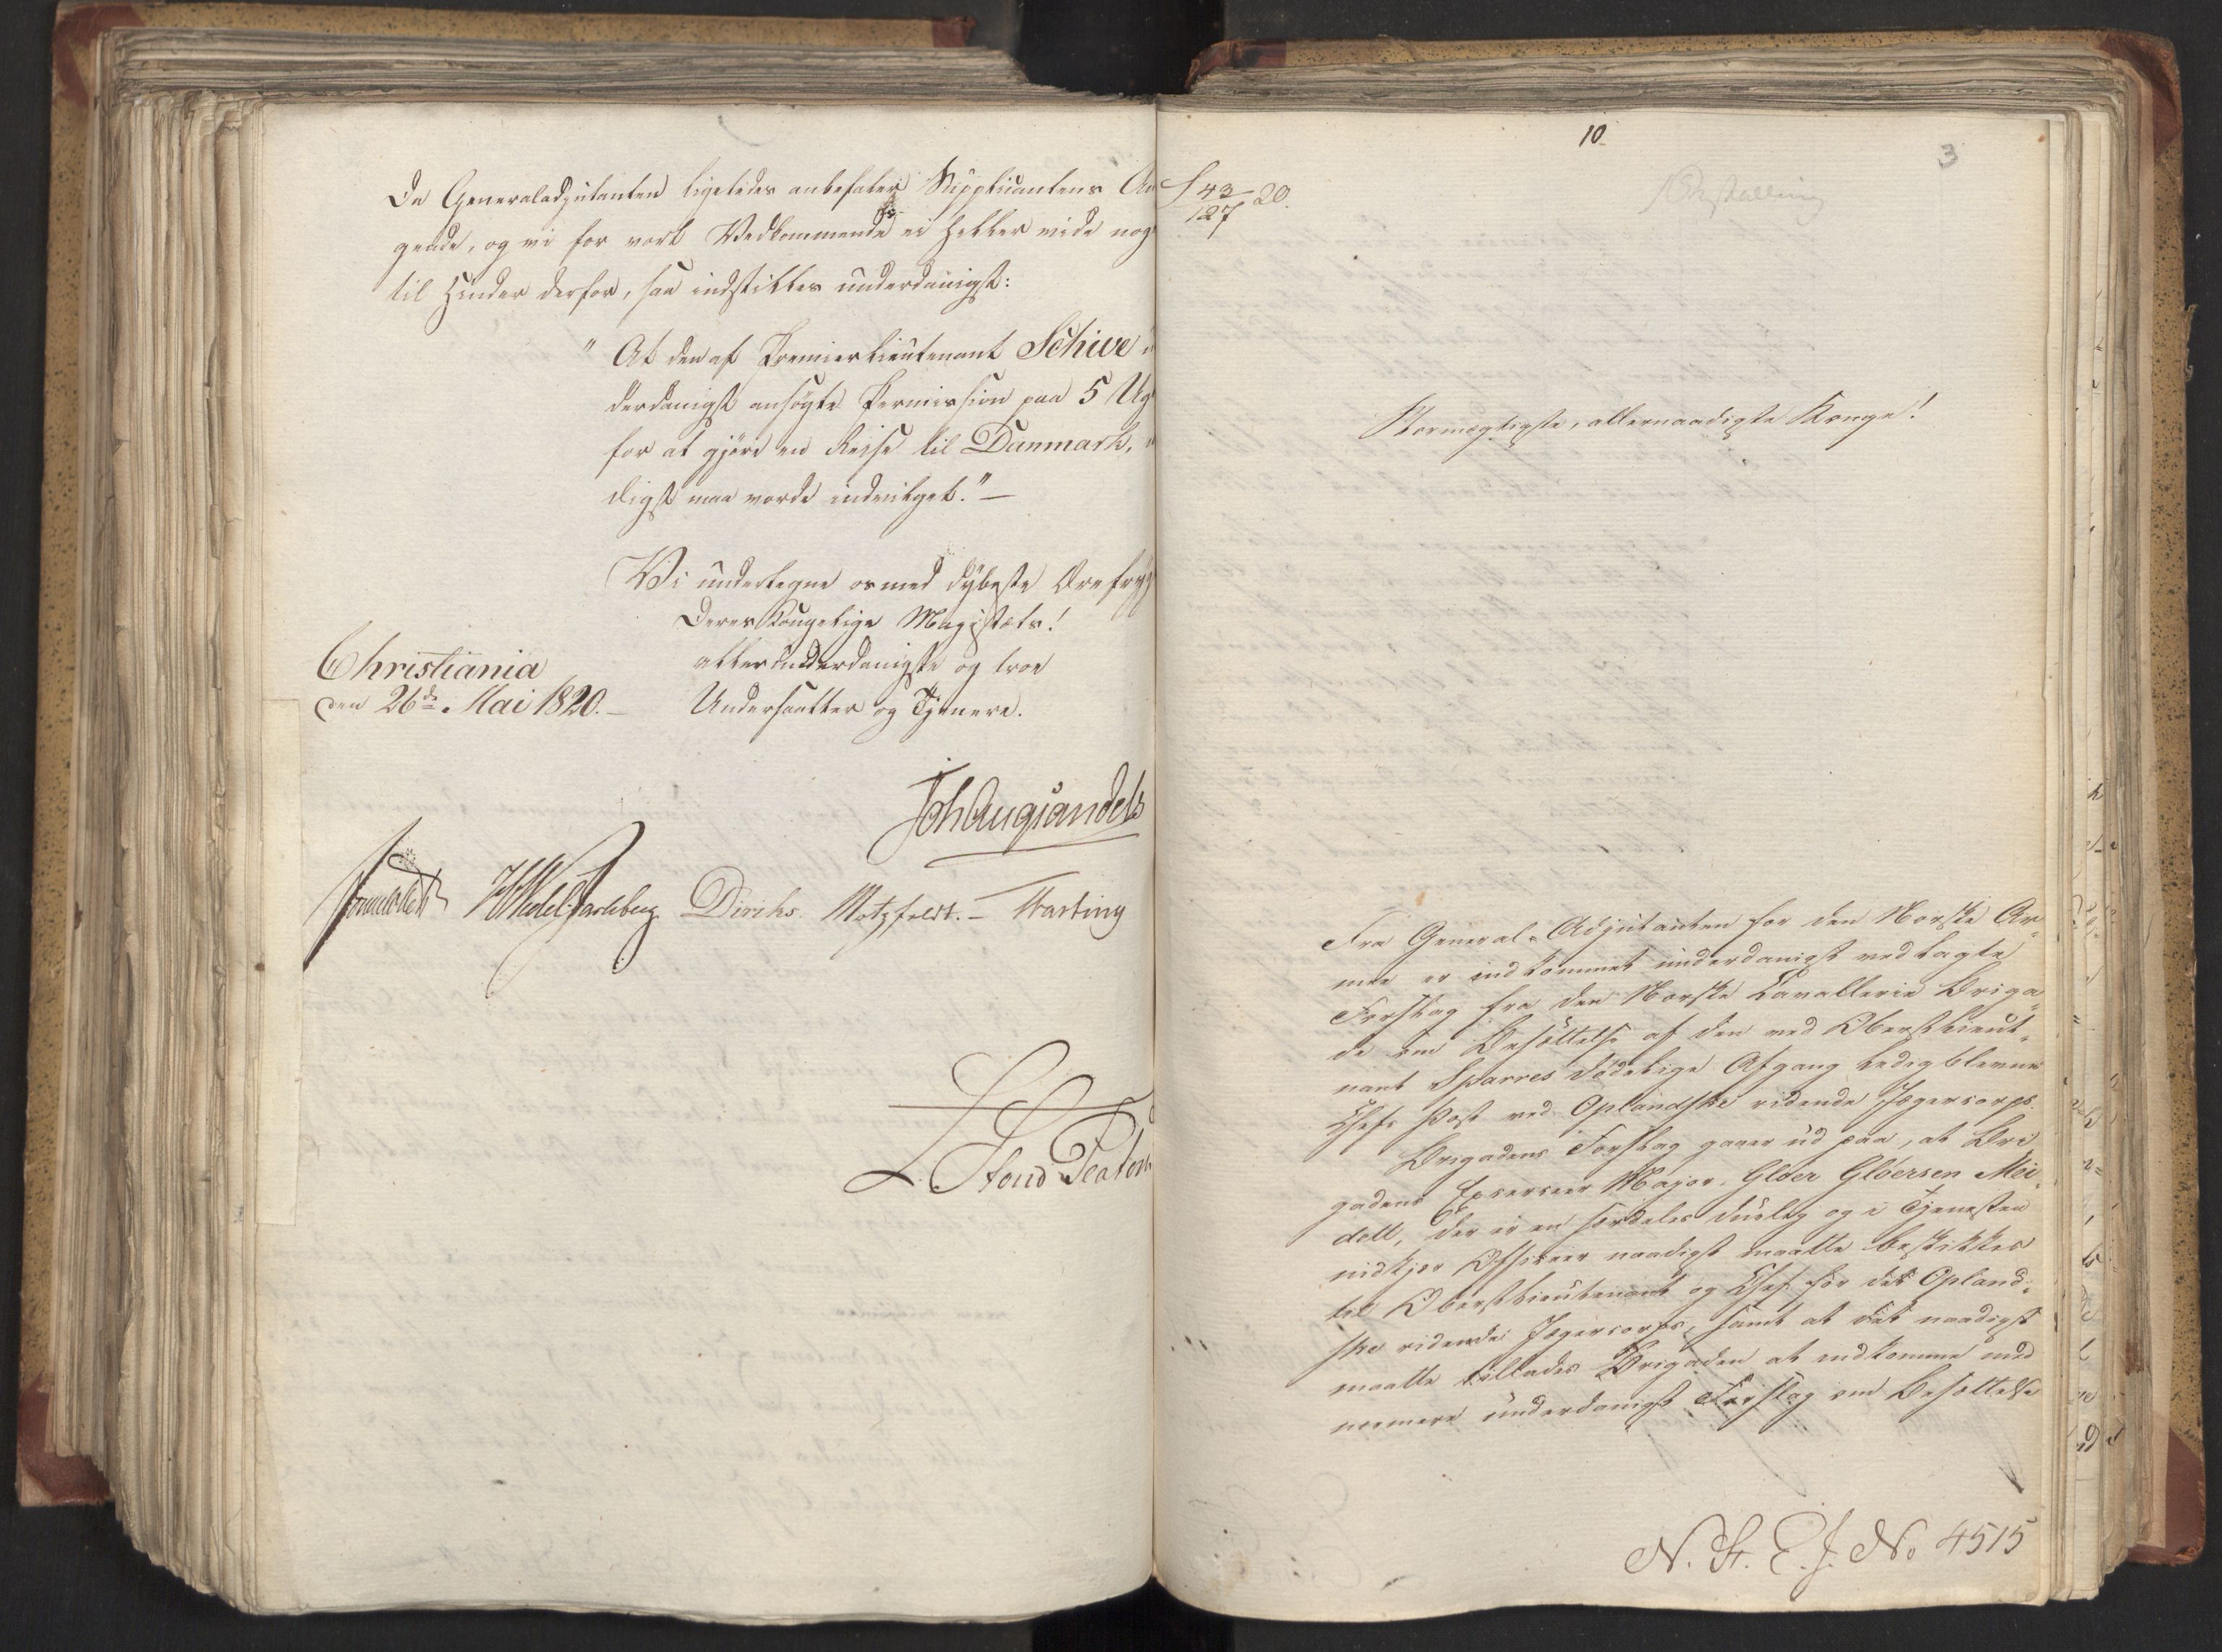 Da Generaladjutanten ligeledes anbefaler Supplicantens An
gende, og vi for vort Vedkommende ei heller vide nog
til Hinder derfor, saa indstilles underdanigst:
"At den af Premierlieutenant Schive
derdanigst ansøgte Permission paa 5 Ug
for at gjøre en Reise til Danmark,
digst maa vorde indvilget."—
Vi undertegne os med dybeste Ærefryg
Deres Kongelige Majestæts!
allerunderdanigste og troe
Undersaatter og Tjenere.
Christiania
den 26de Mai 1820.—
Joh Aug Sandels
Sommerhielm HWedel-Jarlsberg Diriks Motzfeldt.— Fasting
10
3
S 43/127 20.
Stormægtigste, allernaadigste Konge!
Fra General-Adjutanten for den Norske Ar-
mee er indkommet underdanigst vedlagte
Forslag fra den Norske Cavallerie Briga-
de om Besættelse af den ved Oberstlieut-
nant Sparres dødelige Afgang ledigblevne
Chefs Post ved Oplandske ridende Jægercorps.
Brigadens Forslag gaaer ud paa, at Bri
gadens Exerceer Major Gløer Gløersen Mei-
dell, der er en særdeles duelig og i Tjenesten
nidkjer Officeer naadigst maatte beskikkes
til Oberstlieutenant og Chef for det Opland-
ske ridende Jægercorps, samt at det naadigst
maatte tillades Brigaden at indkomme med
nærmere underdanigst Forslag om Besættelse
N. St. E. J. No 4515